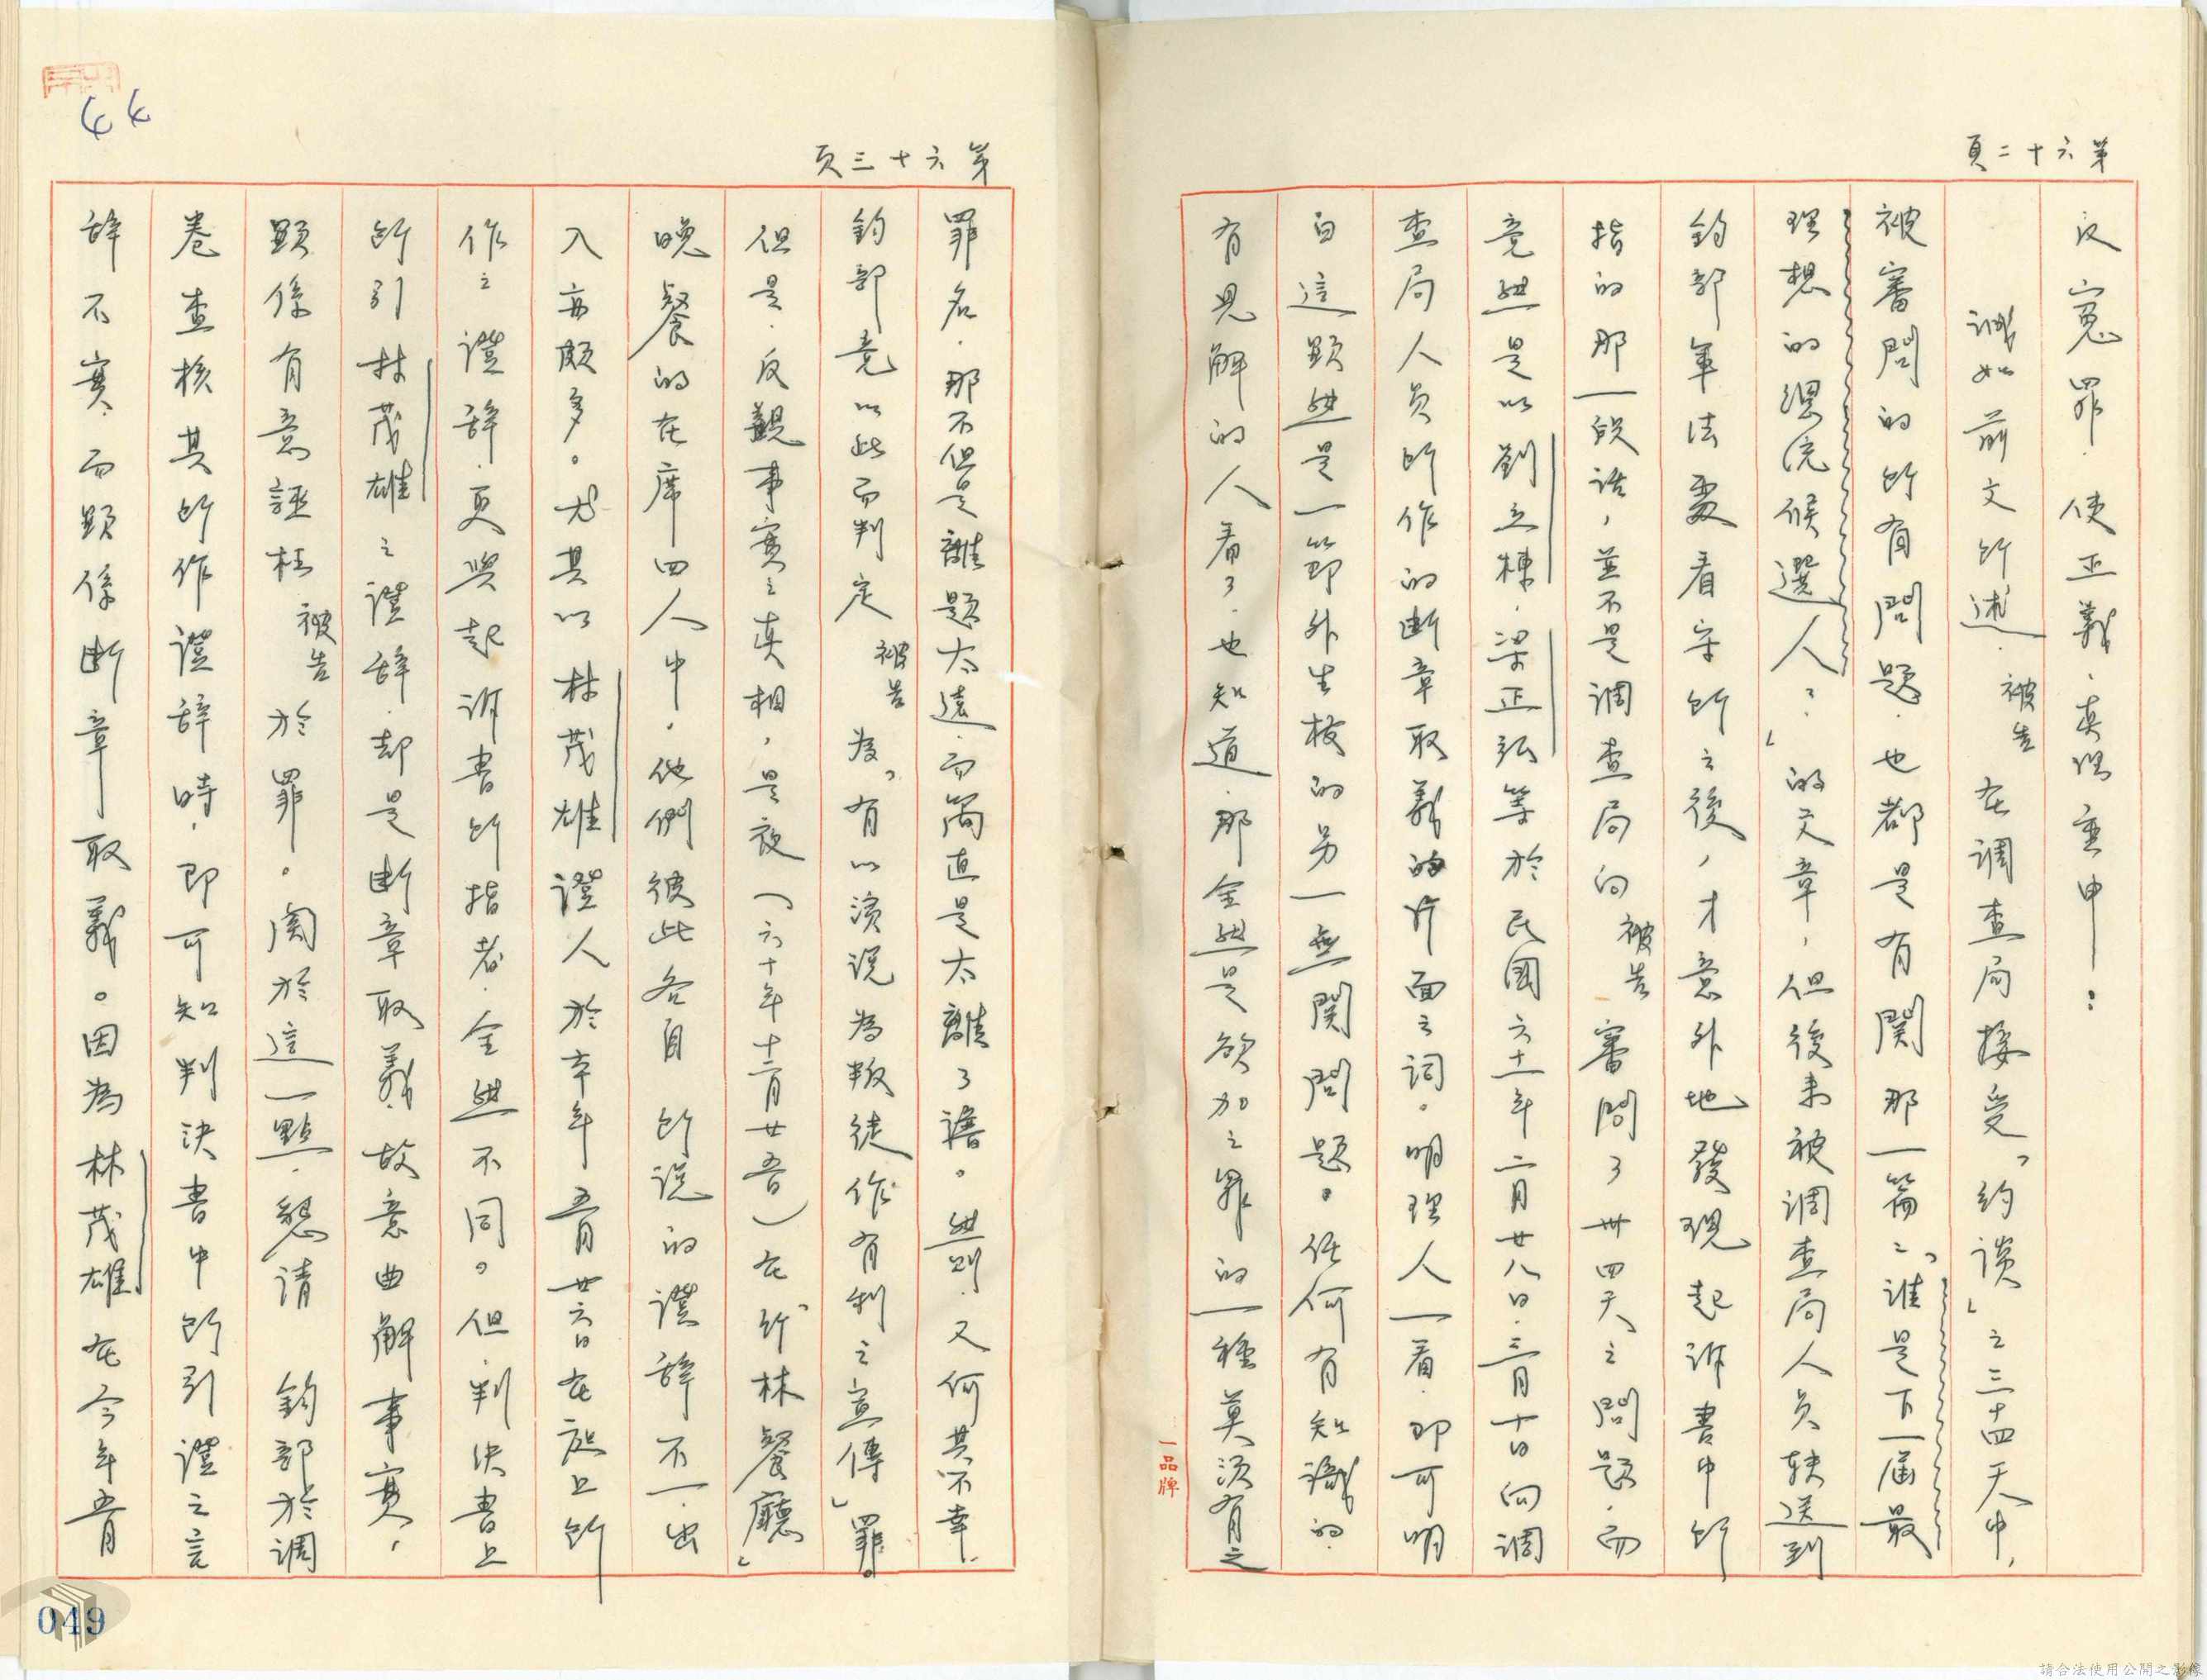 第六十二頁
反冤罪，使正義、真理重申——：
誠如前文所述，被告在調查局接受「約談」之三十四天中，
被審問的所有問題，也都是有關那一篇：「誰是下一屆最
理想的總統候選人？」的文章，但後來被調查局人員轉送到
鈞部軍法處看守所之後，才意外地發現起訴書中所
指的那一段話，並不是調查局向被告審問了卅四天之問題，而
竟然是以劉立棟、梁正弘等於民國六十一年二月廿八日、三月十日向調
查局人員所作的斷章取義的片面之詞。明理人一看，即可明
白這顯然是一節外生枝的另一無關問題。任何有知識的、
有見解的人看了，也知道，那全然是欲加之罪的一種莫須有之
一品牌
第六十三頁
罪名，那不但是離題太遠，而簡直是太離了譜。然則，又何其不幸，
鈞部竟以此而判定被告為「有以演說為叛徒作有利之宣傳」罪。
但是，反觀事實之真相，是夜（六十年十二月廿五日）在「竹林餐廳」
晚餐的在席四人中，他們彼此各自所說的證辭不一，出
入亦頗多。尤其以林茂雄證人於本年五月廿六日在庭上所
作之證辭，更與起訴書所指者，全然不同。但，判決書上
所引林茂雄之證辭，却是斷章取義，故意曲解事實，
顯係有意誣枉被告於罪。關於這一點，懇請鈞部於調
卷查核其所作證辭時，即可知判決書中所引證之言
辭不實，而顯係斷章取義。因為林茂雄在今年五月
44
049
請合法使用公開之影像